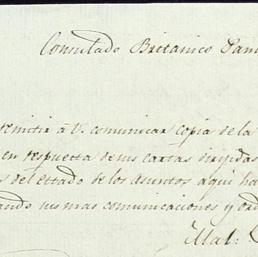 Consulado Britanico Pana
remitir á V. comunicar copia de la
en respuesta de sus cartas dirigidas
del estado de los Asuntos aqui ha
ando sus mas comunicaciones y ord
Mal: